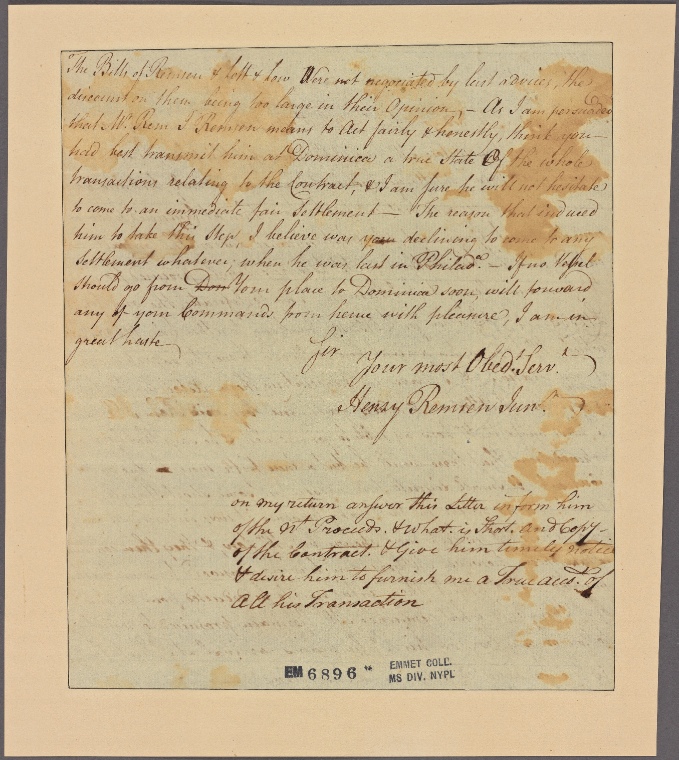 The Bills of Remsen & Coft & Low Were not negociated by last advices, the
discount on them being too large in their Opinion, – As I am persuaded
that Mr. Rem J Remsen means to Act fairly & honestly, think you
had best transmit him at Dominica a true State Of the whole
transactions relating to the Contract, & I am sure he will not hesitate
to come to an immediate fair Settlement – The reason that induced
him to take this Step, I believe was your declining to come to any
Settlement whatever, when he was last in Philada. – If no Vessel
should go from Don Your place to Dominica soon, will forward
any of your Commands from hence with pleasure, I am in
great haste
Sir
Your most Obedt. Servt.
Henry Remsen Junr.
on my return answer this Letter inform him
of the Nt Proceeds. & what is Short, and Copy
of the Contract. & Give him timely notice
& desire him to furnish me a True acct. of
All his Transaction
EM 6896
EMMET COLL.
MS DIV. NYPL